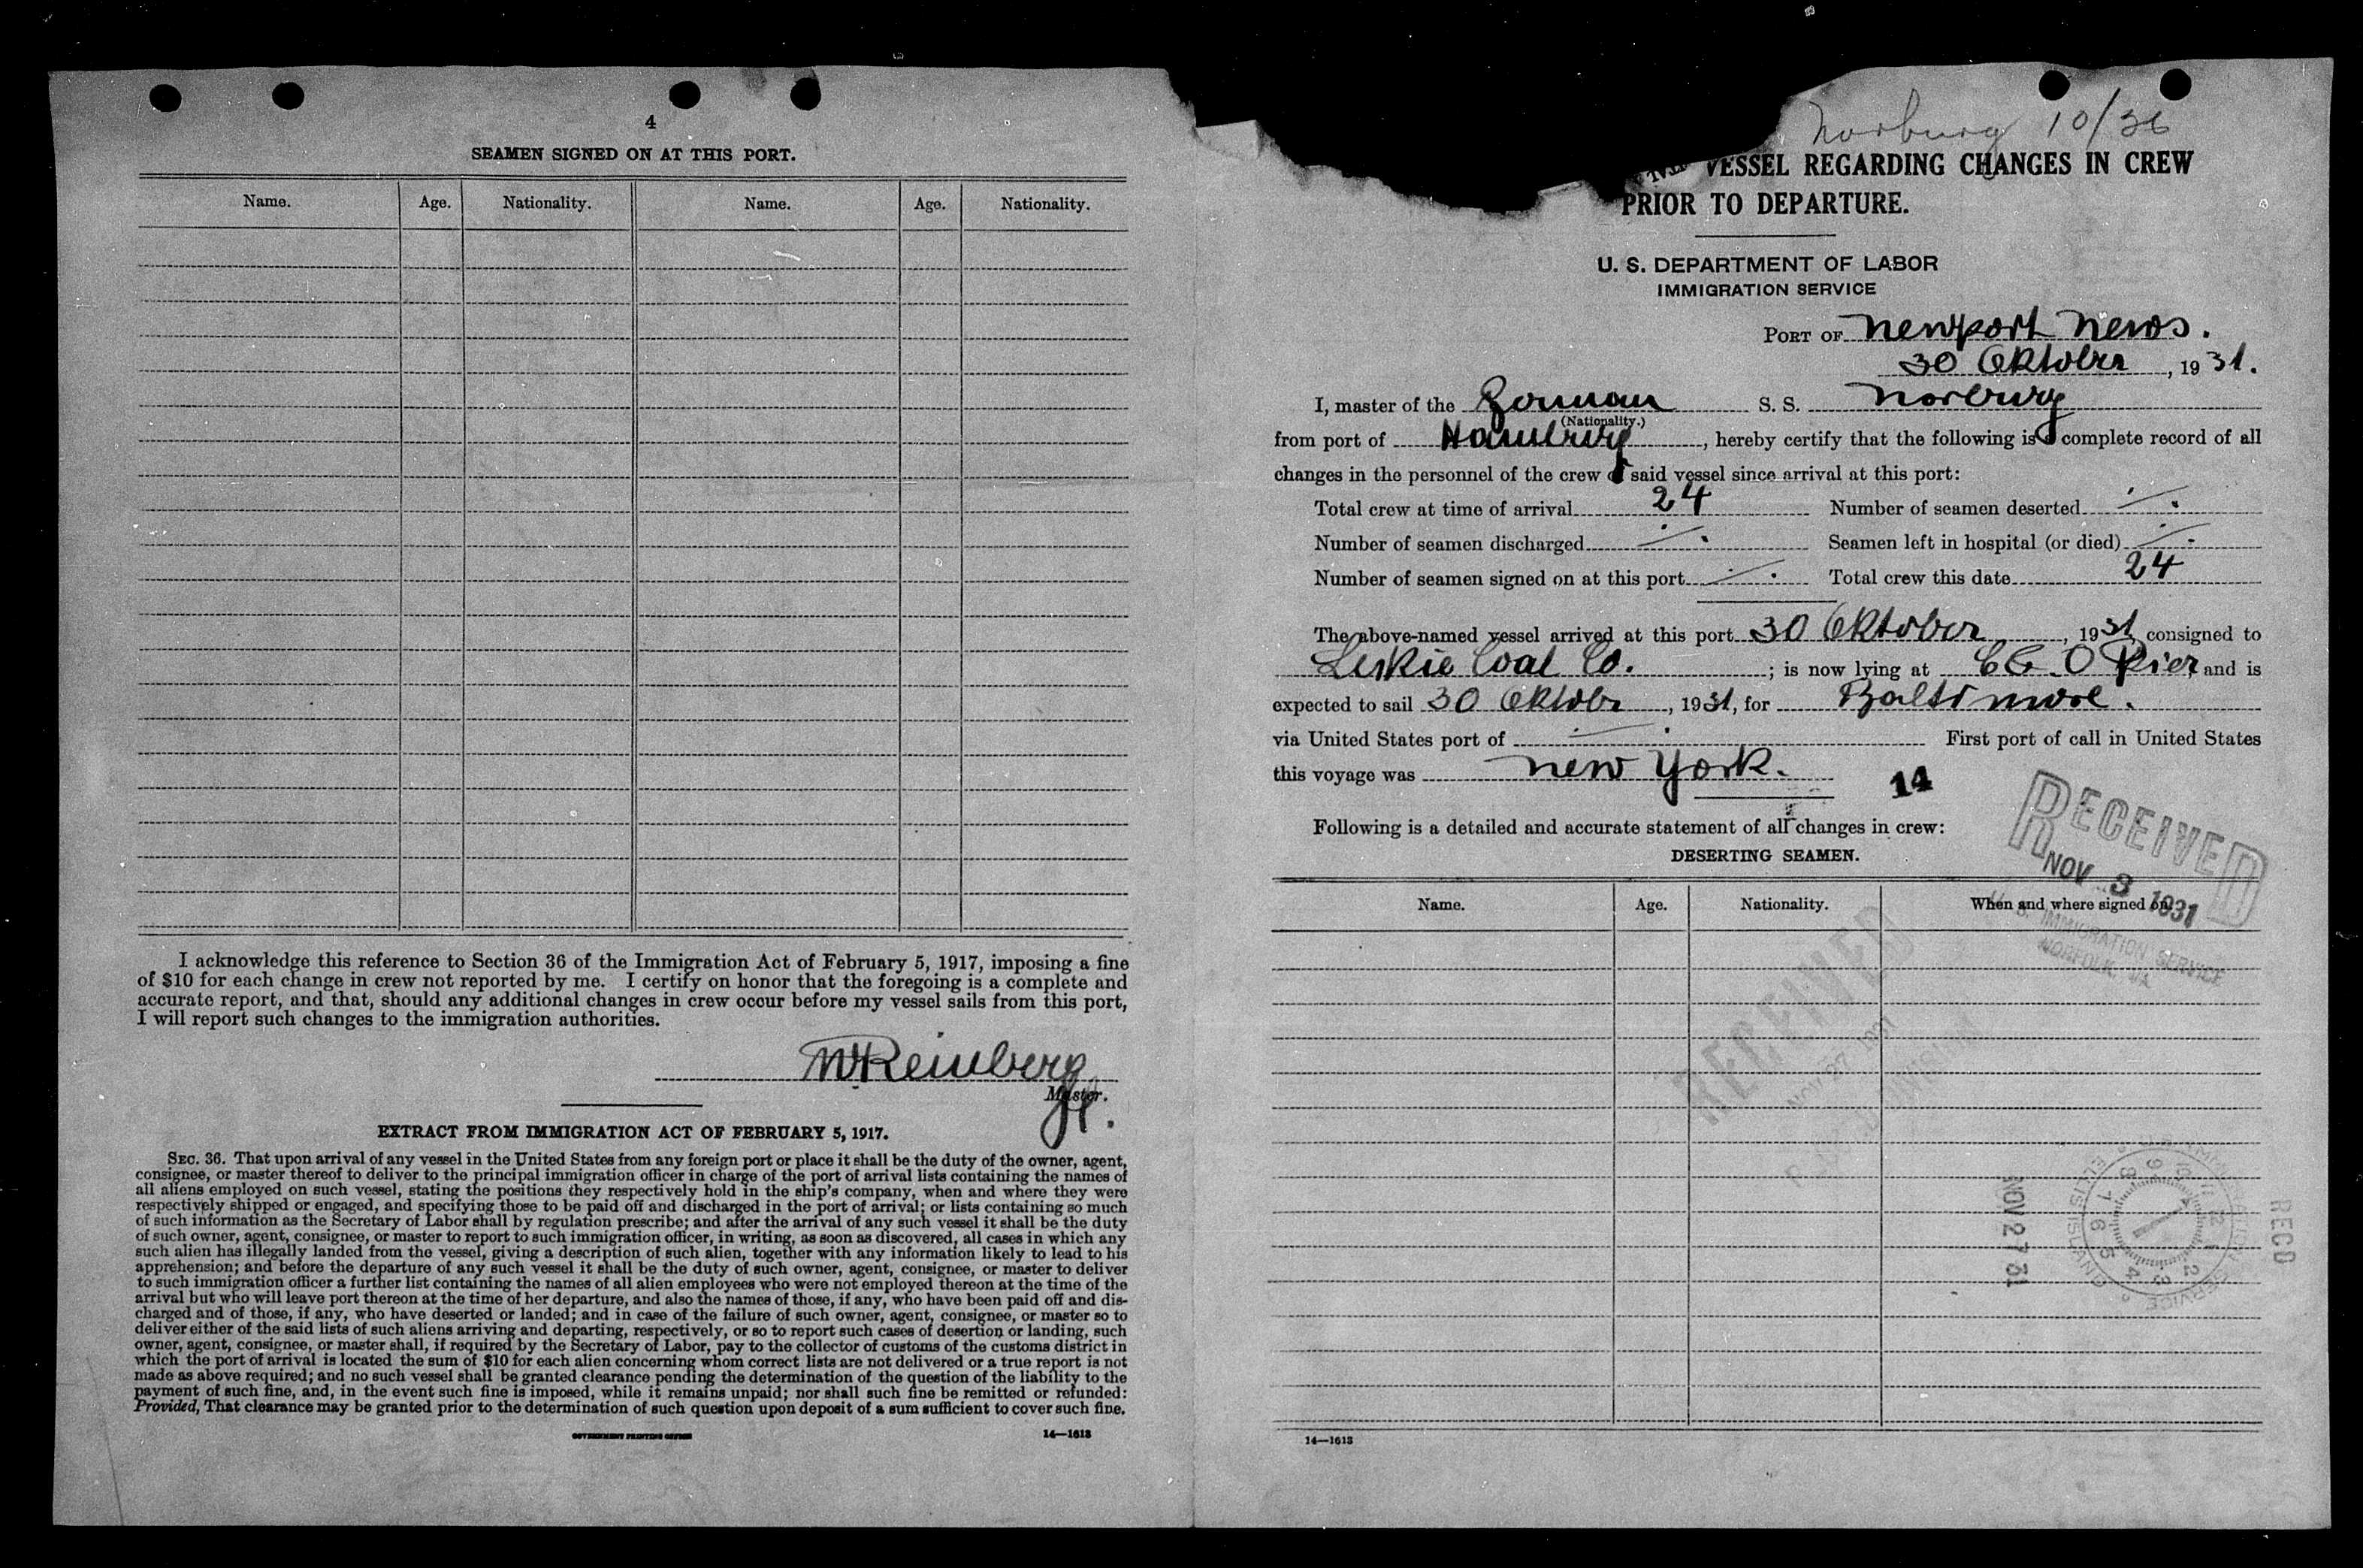 4
SEAMEN SIGNED ON AT THIS PORT.
Name. Age. Nationality. Name. Age. Nationality.
I acknowledge this reference to Section 36 of the Immigration Act of February 5, 1917, imposing a fine
of $10 for each change in crew not reported by me. I certify on honor that the foregoing is a complete and
accurate report, and that, should any additional changes in crew occur before my vessel sails from this port,
I will report such changes to the immigration authorities.
Reimberg
Master.
EXTRACT FROM IMMIGRATION ACT OF FEBRUARY 5, 1917.
SEC. 36. That upon arrival of any vessel in the United States from any foreign port or place it shall be the duty of the owner, agent,
consignee, or master thereof to deliver to the principal immigration officer in charge of the port of arrival lists containing the names of
all aliens employed on such vessel, stating the positions they respectively hold in the ship's company, when and where they were
respectively shipped or engaged, and specifying those to be paid off and discharged in the port of arrival; or lists containing so much
of such information as the Secretary of Labor shall by regulation prescribe; and after the arrival of any such vessel it shall be the duty
of such owner, agent, consignee, or master to report to such immigration officer, in writing, as soon as discovered, all cases in which any
such alien has illegally landed from the vessel, giving a description of such alien, together with any information likely to lead to his
apprehension; and before the departure of any such vessel it shall be the duty of such owner, agent, consignee, or master to deliver
to such immigration officer a further list containing the names of all alien employees who were not employed thereon at the time of the
arrival but who will leave port thereon at the time of her departure, and also the names of those, if any, who have been paid off and dis-
charged and of those, if any, who have deserted or landed; and in case of the failure of such owner, agent, consignee, or master so to
deliver either of the said lists of such aliens arriving and departing, respectively, or so to report such cases of desertion or landing, such
owner, agent, consignee, or master shall, if required by the Secretary of Labor, pay to the collector of customs of the customs district in
which the port of arrival is located the sum of $10 for each alien concerning whom correct lists are not delivered or a true report is not
made as above required; and no such vessel shall be granted clearance pending the determination of the question of the liability to the
payment of such fine, and, in the event such fine is imposed, while it remains unpaid; nor shall such fine be remitted or refunded:
Provided, That clearance may be granted prior to the determination of such question upon deposit of a sum sufficient to cover such fine.
GOVERNMENT PRINTING OFFICE 14—1613
Norburg 10/36
VESSEL REGARDING CHANGES IN CREW
PRIOR TO DEPARTURE.
U. S. DEPARTMENT OF LABOR
IMMIGRATION SERVICE
PORT OF Newport News.
30 Oktober, 1931.
I, master of the German S. S. Norburg
(Nationality.)
from port of Hamburg, hereby certify that the following is complete record of all
changes in the personnel of the crew of said vessel since arrival at this port:
Total crew at time of arrival 24 Number of seamen deserted ./.
Number of seamen discharged ./. Seamen left in hospital (or died) ./.
Number of seamen signed on at this port ./. Total crew this date 24
The above-named vessel arrived at this port 30 Oktober, 1931, consigned to
Leskie Coal Co.; is now lying at C & O Pier, and is
expected to sail 30 Oktober, 1931, for Baltimore.
via United States port of ./. First port of call in United States
this voyage was New York.
14
Following is a detailed and accurate statement of all changes in crew:
RECEIVED
NOV 3 1931
U. S. IMMIGRATION SERVICE
NORFOLK, VA.
DESERTING SEAMEN.
Name. Age. Nationality. When and where signed on.
RECEIVED
NOV 27 1931
DIVISION
IMMIGRATION SERVICE
ELLIS ISLAND
NOV 27 31
RECD
14—1613